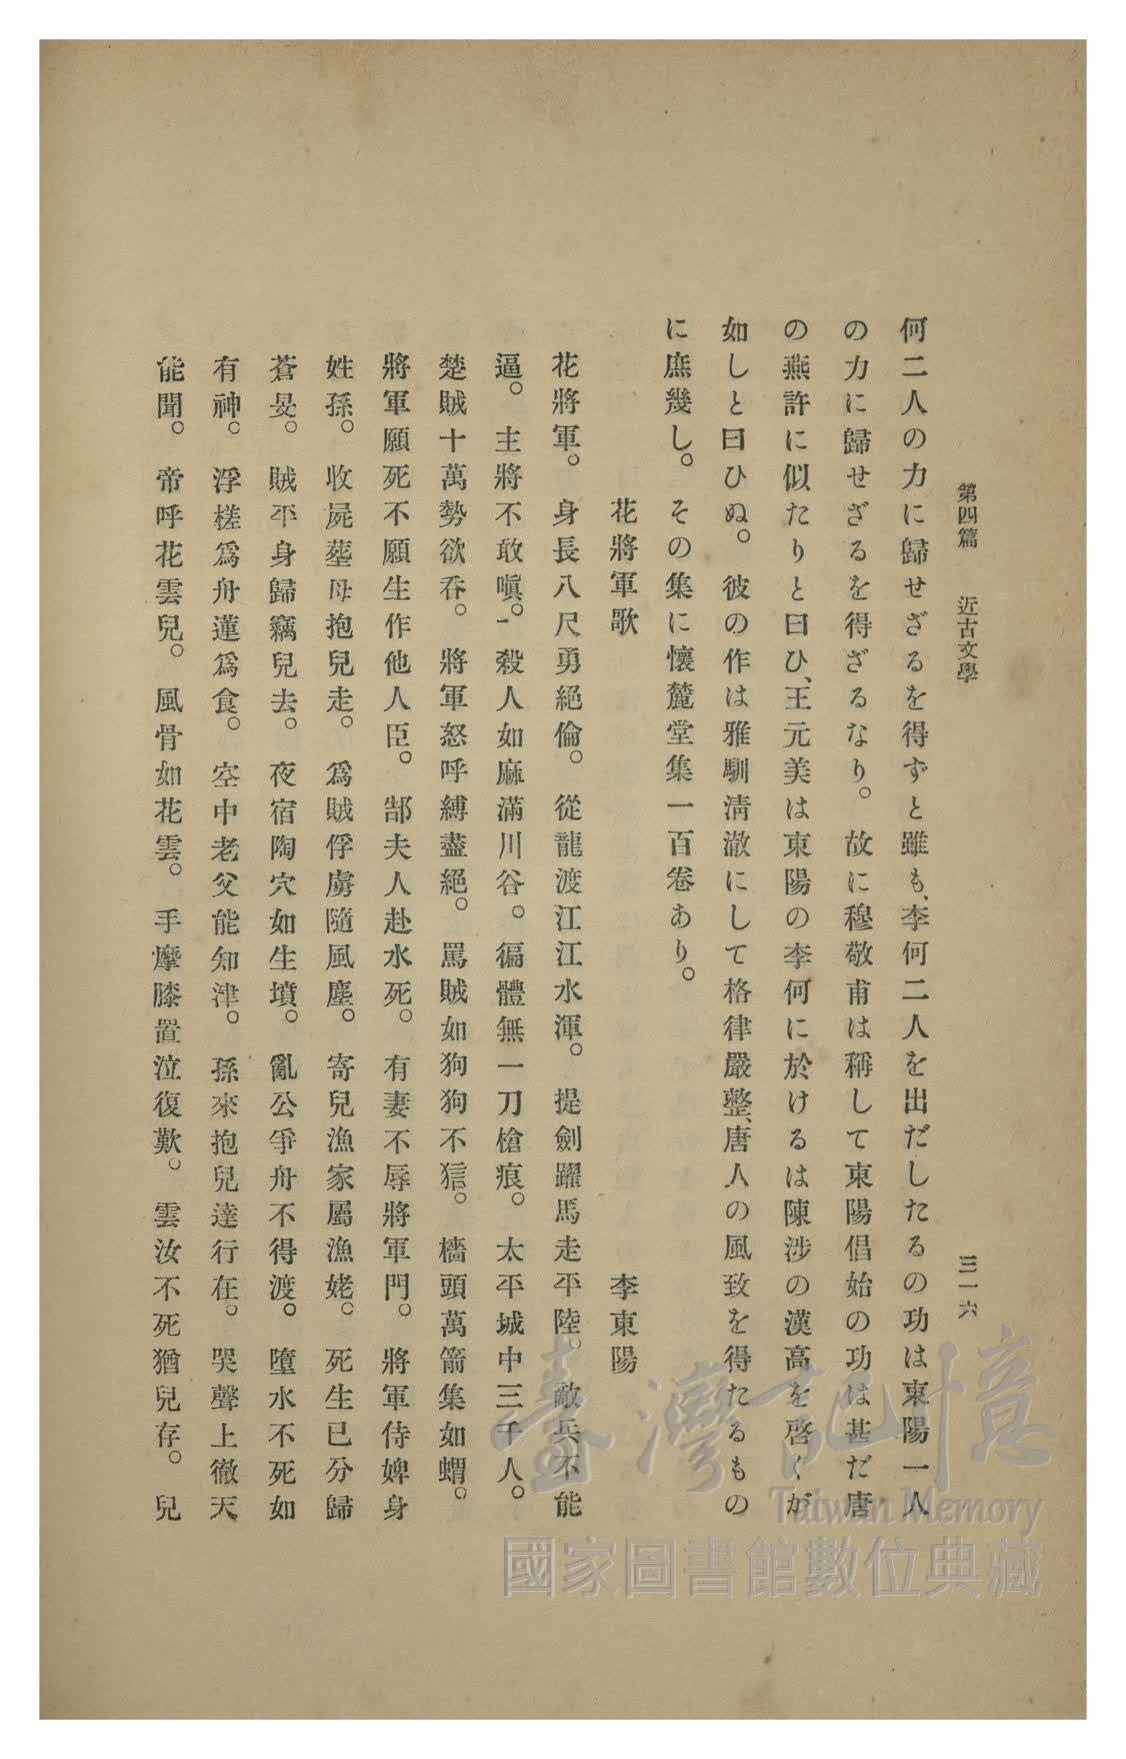 第四篇 近古文學 三一六
何二人の力に歸せざるを得ずと雖も、李何二人を出だしたるの功は東陽一人
の力に歸せざるを得ざるなり。故に穆敬甫は稱して東陽倡始の功は甚だ唐
の燕許に似たりと曰ひ、王元美は東陽の李何に於けるは陳涉の漢高を啓くが
如しと曰ひぬ。彼の作は雅馴淸澈にして格律嚴整、唐人の風致を得たるもの
に庶幾し。その集に懷麓堂集一百卷あり。
花將軍歌 李東陽
花將軍。身長八尺勇絕倫。從龍渡江江水渾。提劍躍馬走平陸。敵兵不能
逼。主將不敢嗔。殺人如麻滿川谷。徧體無一刀槍痕。太平城中三千人。
楚賊十萬勢欲吞。將軍怒呼縛盡絕。罵賊如狗狗不狺。檣頭萬箭集如蝟。
將軍願死不願生作他人臣。郜夫人赴水死。有妻不辱將軍門。將軍侍婢身
姓孫。收屍葬母抱兒走。爲賊俘虜隨風塵。寄兒漁家屬漁姥。死生已分歸
蒼旻。賊平身歸竊兒去。夜宿陶穴如生墳。亂公爭舟不得渡。墮水不死如
有神。浮槎爲舟蓮爲食。空中老父能知津。孫來抱兒達行在。哭聲上徹天
能聞。帝呼花雲兒。風骨如花雲。手摩膝置泣復歎。雲汝不死猶兒存。兒
臺灣記憶
Taiwan Memory
國家圖書館數位典藏